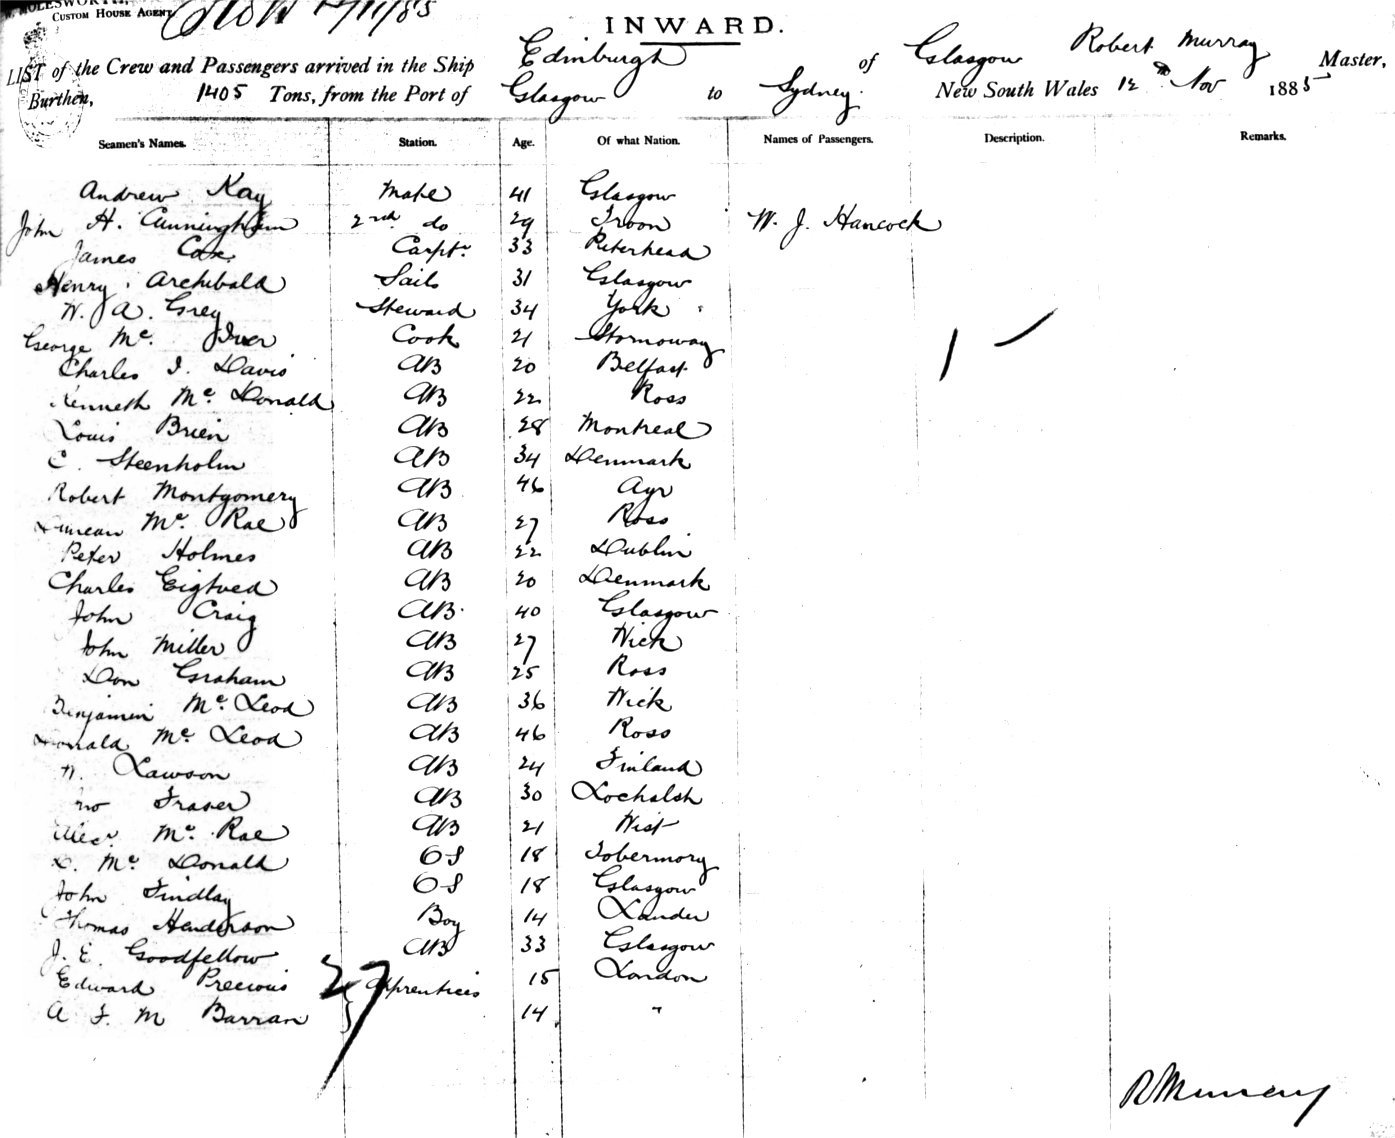 MOLESWORTH,
CUSTOM HOUSE AGENT
INWARD.
LIST of the Crew and Passengers arrived in the Ship Edinburgh of Glasgow Robert Murray Master,
Burthen, 1405 Tons, from the Port of Glasgow to Sydney. New South Wales 12th Nov 1885
Seamen's Names. Station. Age. Of what Nation. Names of Passengers. Description. Remarks.
Andrew Kay Mate 41 Glasgow
John H. Cunningham 2nd do 29 Troon W. J. Hancock
James Cox Carptr 33 Peterhead
Henry Archibald Sails 31 Glasgow
W. A. Grey Steward 34 York
George Mc. Iver Cook 21 Stornoway
Charles I. Davis AB 20 Belfast
Kenneth Mc. Donald AB 22 Ross
Louis Brien AB 28 Montreal
C. Steenholm AB 34 Denmark
Robert Montgomery AB 46 Ayr
Duncan Mc. Rae AB 27 Ross
Peter Holmes AB 22 Dublin
Charles Eigtved AB 20 Denmark
John Craig AB. 40 Glasgow
John Miller AB 27 Wick
Don Graham AB 25 Ross
Benjamin Mc. Leod AB 36 Wick
Donald Mc. Leod AB 46 Ross
Lawson AB 24 Finland
Jno Fraser AB 30 Lochalsh
Alecr. Mc. Rae AB 21 Wist
D. Mc. Donald OS 18 Tobermory
John Findlay OS 18 Glasgow
Thomas Henderson Boy 14 Lauder
J. E. Goodfellow AB 33 Glasgow
Edward Precious Apprentices 15 London
A F. M Barran 14 "
27
1 –
R Murray